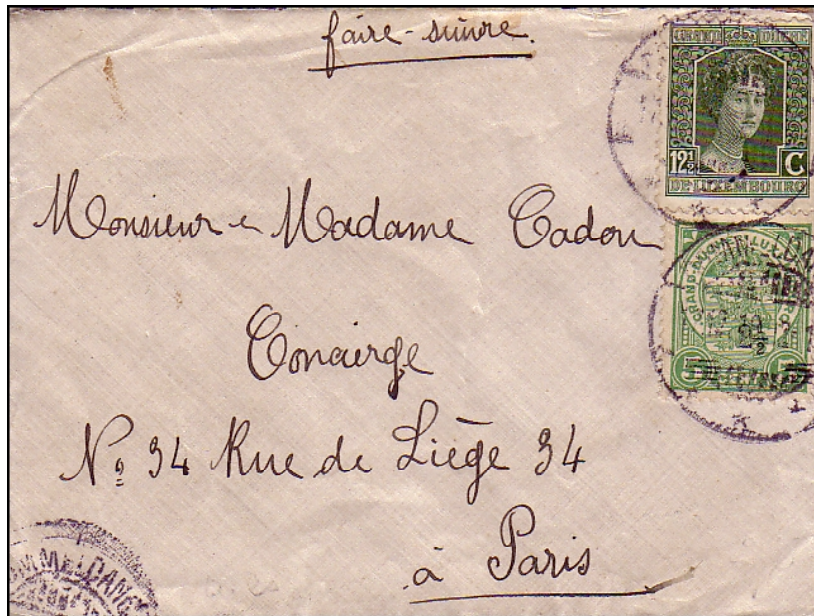 faire-suivre.
GRAND DUCHÉ
12½ C
DE LUXEMBOURG
Monsieur e Madame Cadou
Concierge
No 34 Rue de Liège 34
à Paris
GRAND-DUCHÉ
2½